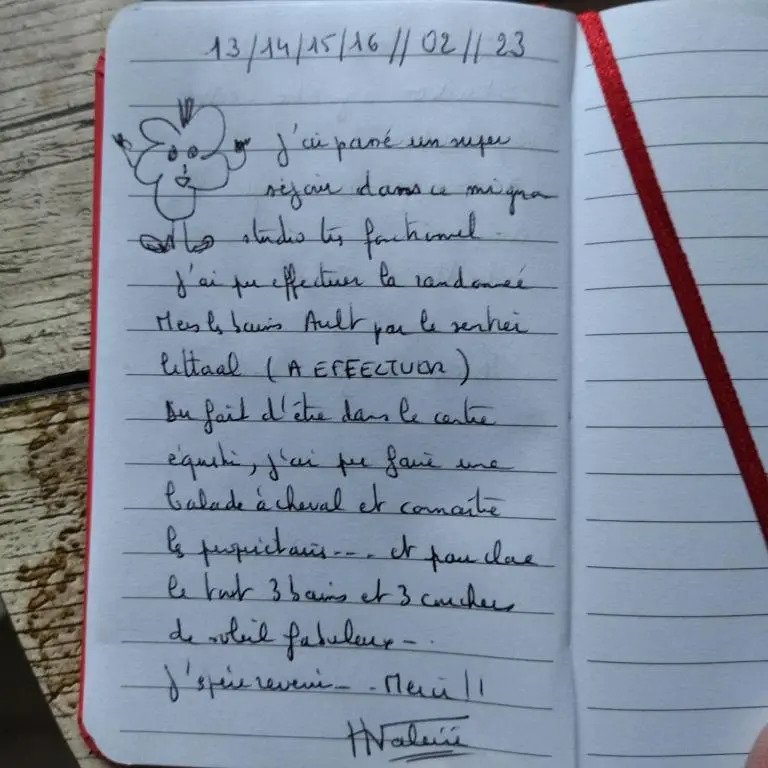 13/14/15/16//02//23
J'ai passé un super
séjour dans ce mignon
studio très fonctionnel.
J'ai pu effectuer la randonnée
Mers les bains Ault par le sentier
littoral (A EFFECTUER)
Du fait d'être dans le centre
équestre, j'ai pu faire une
balade à cheval et connaître
les propriétaires... et pour clore
le tout 3 bains et 3 couchers
de soleil fabuleux...
J'espère revenir... Merci !!
Valérie